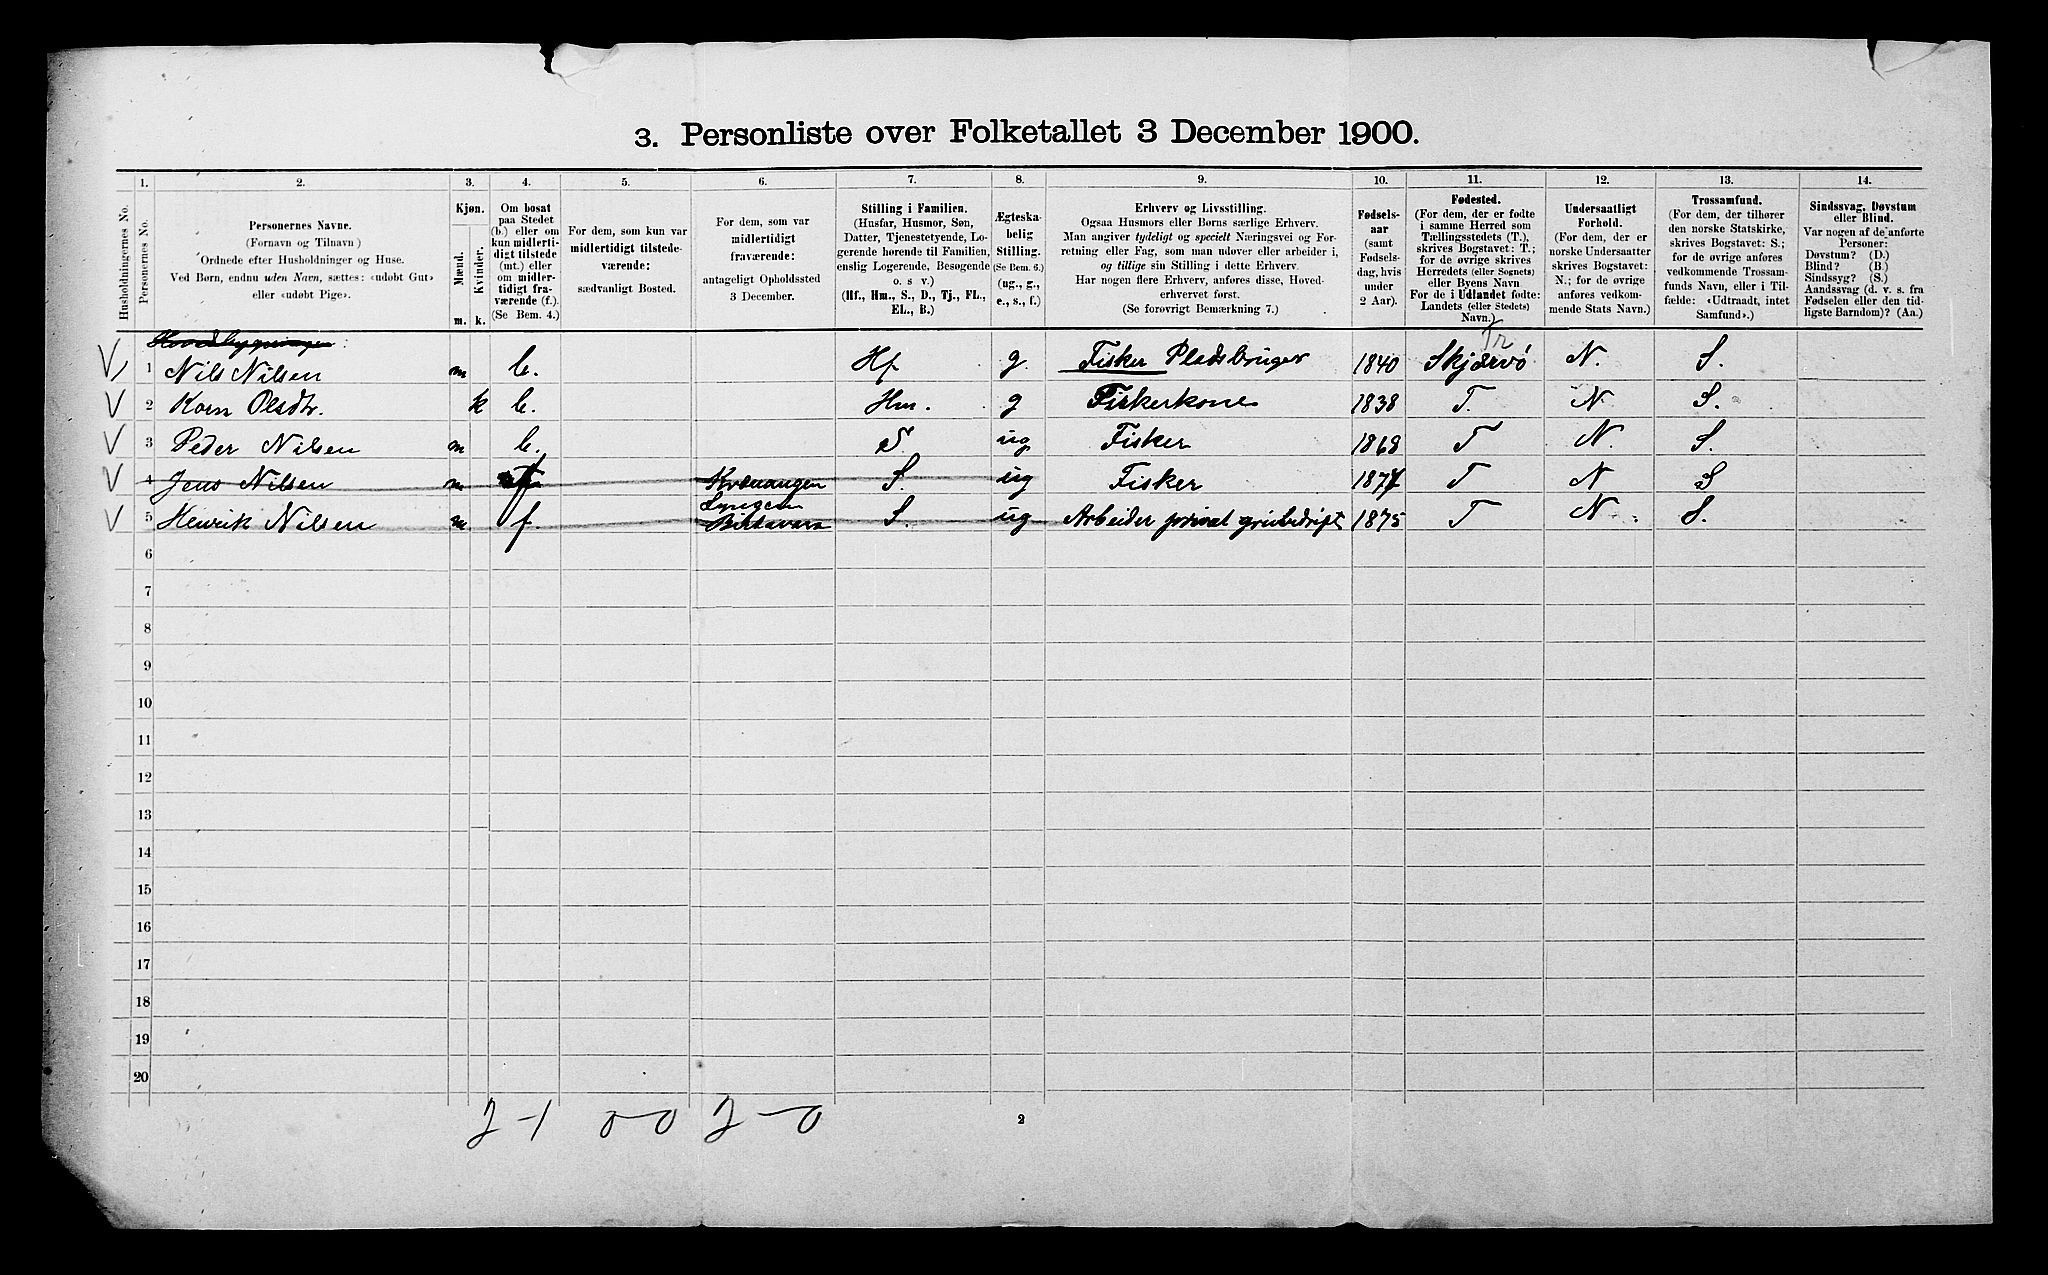 3. Personliste over Folketallet 3 December 1900.
1. 2. 3. 4. 5. 6. 7. 8. 9. 10. 11. 12. 13. 14.
Husholdningernes No.
Personernes No.
Personernes Navne.
(Fornavn og Tilnavn)
Ordnede efter Husholdninger og Huse.
Ved Børn, endnu uden Navn, sættes: «udøbt Gut»
eller «udøbt Pige».
Kjøn.
Mænd.
Kvinder.
m. k.
Om bosat
paa Stedet
(b.) eller om
kun midlerti-
digt tilstede
(mt.) eller
om midler-
tidigt fra-
værende (f.).
(Se Bem. 4.)
For dem, som kun var
midlertidigt tilstede-
værende:
sædvanligt Bosted.
For dem, som var
midlertidigt
fraværende:
antageligt Opholdssted
3 December.
Stilling i Familien.
(Husfar, Husmor, Søn,
Datter, Tjenestetyende, Lo-
gerende hørende til Familien,
enslig Logerende, Besøgende
o. s v.)
(Hf., Hm., S., D., Tj., FL.,
EL., B.)
Ægteska-
belig
Stilling.
(Se Bem. 6.)
(ug., g.,
e., s., f.)
Erhverv og Livsstilling.
Ogsaa Husmors eller Børns særlige Erhverv.
Man angiver tydeligt og specielt Næringsvei og For-
retning eller Fag, som man udøver eller arbeider i,
og tillige sin Stilling i dette Erhverv.
Har nogen flere Erhverv, anføres disse, Hoved-
erhvervet først.
(Se forøvrigt Bemærkning 7.)
Fødsels-
aar
(samt
Fødsels-
dag, hvis
under
2 Aar).
Fødested.
(For dem, der er fødte
i samme Herred som
Tællingsstedets (T.),
skrives Bogstavet: T.;
for de øvrige skrives
Herredets (eller Sognets)
eller Byens Navn.
For de i Udlandet fødte:
Landets (eller Stedets)
Navn.)
Undersaatligt
Forhold.
(For dem, der er
norske Undersaatter
skrives Bogstavet:
N.; for de øvrige
anføres vedkom-
mende Stats Navn.)
Trossamfund.
(For dem, der tilhører
den norske Statskirke,
skrives Bogstavet: S.;
for de øvrige anføres
vedkommende Trossam-
funds Navn, eller i Til-
fælde: «Udtraadt, intet
Samfund».)
Sindssvag, Døvstum
eller Blind.
Var nogen af de anførte
Personer:
Døvstum? (D.)
Blind? (B.)
Sindssyg? (S.)
Aandssvag (d. v. s. fra
Fødselen eller den tid-
ligste Barndom)? (Aa.)
Hovedbygningen:
Tr
1 Nils Nilsen m b. Hf g. Fisker Pladsbruger 1840 Skjærvø N. S.
2 Karn Olsdtr. k b. Hm. g Fiskerkone 1838 T. N S.
3 Peder Nilsen m b. S. ug Fisker 1868 T N. S.
4 Jens Nilsen m f Kvænangen S. ug Fisker 1877 T N S
Lyngen
5 Henrik Nilsen m f. Birtavara S. ug Arbeider privat grubedrift 1875 T N. S.
6
7
8
9
10
11
12
13
14
15
16
17
18
19
20
2-1 0-0 2-0
2